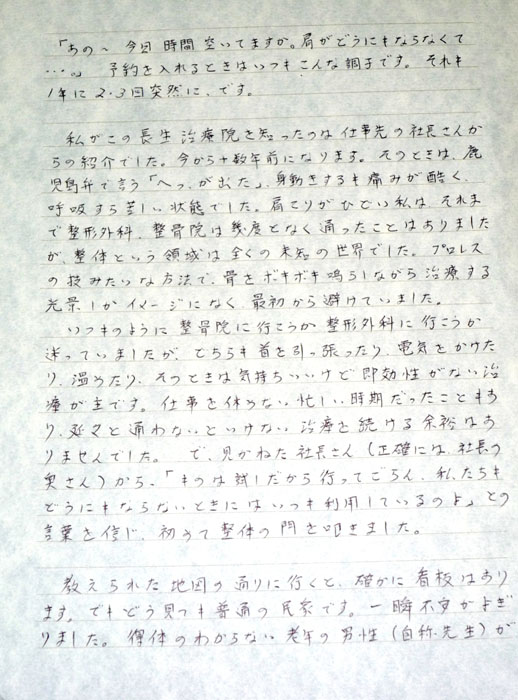 「あの～今日時間空いてますか。肩がどうにもならなくて
…。」 予約を入れるときはいつもこんな調子です。それも
1年に2・3回突然に、です。
私がこの長生治療院を知ったのは仕事先の社長さんか
らの紹介でした。今から十数年前になります。そのときは、鹿
児島弁で言う「へっ、が出た」、身動きするも痛みが酷く、
呼吸すら苦しい状態でした。肩こりがひどい私は、それま
で整形外科、整骨院は幾度となく通ったことはありました
が、整体という領域は全くの未知の世界でした。プロレス
の技みたいな方法で、骨をボキボキ鳴らしながら治療する
光景しかイメージになく、最初から避けていました。
いつものように整骨院に行こうか整形外科に行こうか
迷っていましたが、どちらも首を引っ張ったり、電気をかけた
り、温めたり、そのときは気持ちいいけど即効性がない治
療が主です。仕事を休めない忙しい時期だったこともあ
り、延々と通わないといけない治療を続ける余裕はあ
りませんでした。 で、見かねた社長さん（正確には、社長の
奥さん）から、「ものは試しだから行ってごらん、私たちも
どうにもならないときにはいつも利用しているのよ」との
言葉を信じ、初めて整体の門を叩きました。
教えられた地図の通りに行くと、確かに看板はあり
ます。でもどう見ても普通の民家です。一瞬不安がよぎ
りました。得体のわからない老年の男性（自称・先生）が